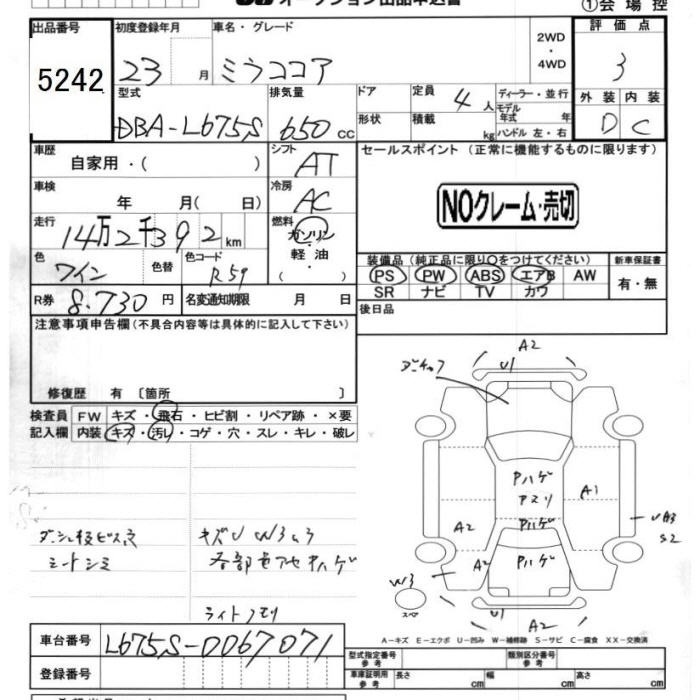 オークション出品申込書
①会場控
出品番号 初度登録年月 車名・グレード 2WD・4WD 評価点
5242 23 月 ミラココア 3
型式 排気量 ドア 定員 ディーラー・並行 外装 内装
DBA-L675S 650 cc 4人 モデル年式 年 D C
形状 積載 kg ハンドル 左・右
車歴 シフト セールスポイント (正常に機能するものに限ります)
自家用・( ) AT
車検 冷房 NOクレーム・売切
年 月( 日) AC
走行 燃料
14万2千392km ガソリン・軽油
色 色替 色コード 装備品 (純正品に限り○をつけてください) 新車保証書
ワイン R59 PS PW ABS エアB AW 有・無
R券 8.730円 名変通知期限 月 日 SR ナビ TV カワ
後日品
注意事項申告欄(不具合内容等は具体的に記入して下さい)
修復歴 有〔箇所 〕
検査員 FW キズ・飛石・ヒビ割・リペア跡・×要
記入欄 内装 キズ・汚レ・コゲ・穴・スレ・キレ・破レ
A2
U1
Pハゲ
Pハゲ
A1
A2
Pハゲ
A2
W3
スペ
U1
A2
S2
シートシミ
ライトクモリ
A-キズ E-エクボ U-凹み W-補修跡 S-サビ C-腐食 XX-交換済
車台番号 L675S-0067071
型式指定番号 参考 類別区分番号 参考
登録番号 車庫証明用 参考 長さ cm 幅 cm 高さ cm